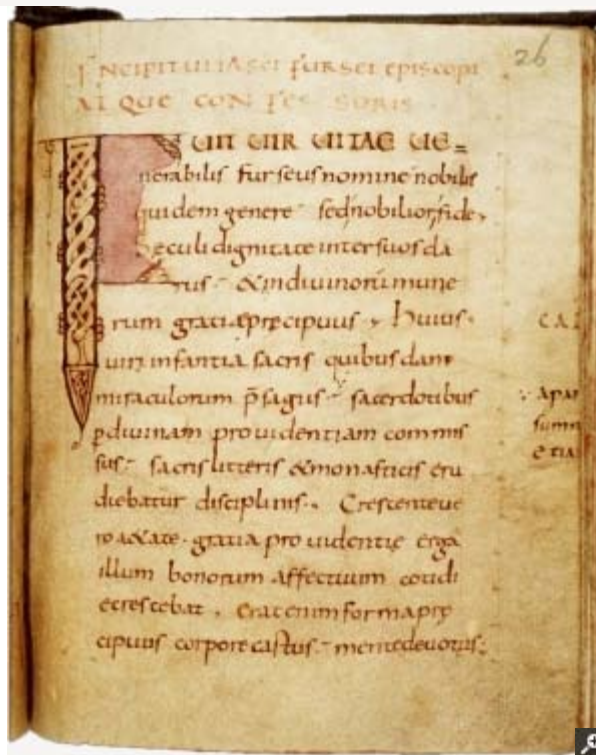 26
INCIPIT UITA SCI FURSEI EPISCOPI
ATQUE CONFESSORIS
FUIT UIR UITAE UE=
nerabilis furseus nomine nobilis
quidem genere sed nobilior fide,
Seculi dignitate inter suos cla
rus & in diuinorũ mune
rum gratia pręcipuus, Huius
uiri infantia sacris quibusdam
miraculorum p̄sagus sacerdotibus
ꝑ diuinam prouidentiam commis
sus sacris litteris & monasticis eru
diebatur disciplinis. Crescente ue
ro aetate gratia prouidentię erga
illum bonorum affectuum cotidi
e crescebat, erat enim forma prę
cipuus corpore castus mente deuotus;
CA
apar
sum
etia